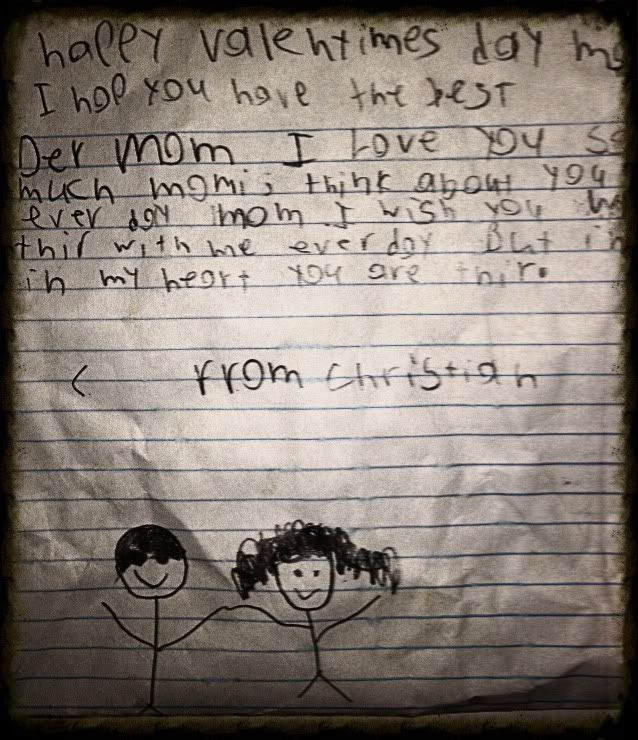 happy valentimes day
I hop you have the best
Der mom I Love you
much momi; think about you
ever day mom I wish you
thir with me ever day But
in my heart you are thir.
from Christian